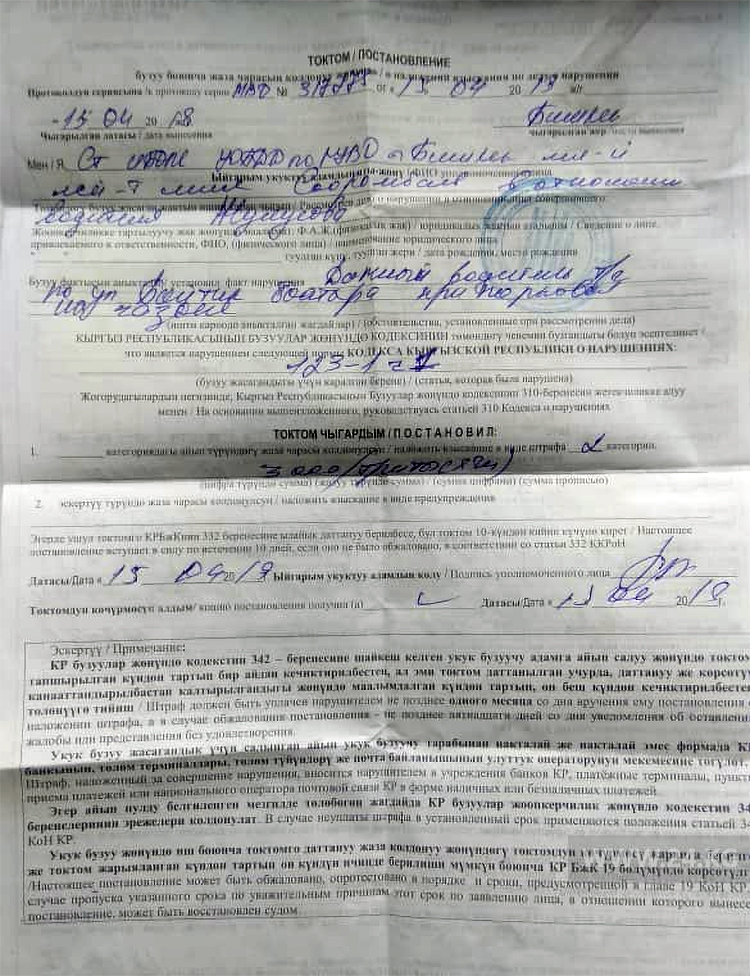 ТОКТОМ / ПОСТАНОВЛЕНИЕ
бузуу боюнча жаза чарасын колдонуу / о наложении взыскания по делу нарушения
Протоколдун сериясына /к протоколу серии МВД № от « 15 04 20 19 ж/г
15 04 20 Бишкек
Чыгарылган датасы / дата вынесения Чыгарылган жер / место вынесения
Мен / Я, Ст по г Бишкек
Ыйгарым укуктуу адамдын аты-жөнү / ФИО уполномоченного лица
в отношении
водителя
Жоопкерчиликке тартылуучу жак жөнүндө маалымат: Ф.А.Ж.(физикалык жак) / юридикалык жактын аталышы / Сведение о лице,
привлекаемого к ответственности, ФИО, (физического лица) / наименование юридического лица
туулган күнү, туулган жери / дата рождения, место рождения
Бузуу фактысын аныктадым/ установил факт нарушения Данный водитель
по ул Байтик баатыра припарковал
на газоне
(ишти кароодо аныкталган жагдайлар) / (обстоятельства, установленные при рассмотрении дела)
КЫРГЫЗ РЕСПУБЛИКАСЫНЫН БУЗУУЛАР ЖӨНҮНДӨ КОДЕКСИНИН төмөндөгү ченемин бузгандыгы болуп эсептелинет /
что является нарушением следующей нормы КОДЕКСА КЫРГЫЗСКОЙ РЕСПУБЛИКИ О НАРУШЕНИЯХ:
123-1 ч 1
(бузуу жасагандыгы үчүн каралган берене) / (статьи, которая была нарушена)
Жогорудагылардын негизинде, Кыргыз Республикасынын Бузуулар жөнүндө кодексинин 310-беренесин жетекчиликке алуу
менен / На основании вышеизложенного, руководствуясь статьей 310 Кодекса о нарушениях
ТОКТОМ ЧЫГАРДЫМ / П О С Т А Н О В И Л :
1. категориядагы айып түрүндөгү жаза чарасы колдонулсун / наложить взыскание в виде штрафа 2 категории.
3000 (три тысячи)
(цифра түрүндө сумма) (жазуу түрүндө сумма) / (сумма цифрами) (сумма прописью)
2. эскертүү түрүндө жаза чарасы колдонулсун / наложить взыскание в виде предупреждения
Эгерде ушул токтомго КРБжКнин 332 беренесине ылайык даттануу берилбесе, бул токтом 10-күндөн кийин күчүнө кирет / Настоящее
постановление вступает в силу по истечении 10 дней, если оно не было обжаловано, в соответствии со статьи 332 ККРоН
Датасы/Дата « 15 04 20 19 Ыйгарым укуктуу адамдын колу / Подпись уполномоченного лица
Токтомдун көчүрмөсүн алдым/ копию постановления получил (а) Датасы/Дата « 15 04 20 19 г.
Эскертүү / Примечание:
КР бузуулар жөнүндө кодекстин 342 – беренесине шайкеш келген укук бузуучу адамга айып салуу жөнүндө токтом
тапшырылган күндөн тартып бир айдан кечиктирилбестен, ал эми токтом даттанылган учурда, даттануу же көрсөтүү
канааттандырылбастан калтырылгандыгы жөнүндө маалымдалган күндөн тартып, он беш күндөн кечиктирилбестен
төлөнүүгө тийиш / Штраф должен быть уплачен нарушителем не позднее одного месяца со дня вручения ему постановления о
наложении штрафа, а в случае обжалования постановления - не позднее пятнадцати дней со дня уведомления об оставлении
жалобы или представления без удовлетворения.
Укук бузуу жасагандык үчүн салынган айып укук бузуучу тарабынан накталай же накталай эмес формада КР
банкынын, төлөм терминалдары, төлөм түйүндөрү же почта байланышынын улуттук операторунун мекемесине төгүлөт.
Штраф, наложенный за совершение нарушения, вносится нарушителем в учреждения банков КР, платёжные терминалы, пункты
приема платежей или национального оператора почтовой связи КР в форме наличных или безналичных платежей.
Эгер айып пулду белгиленген мезгилде төлөбөгөн жагдайда КР бузуулар жоопкерчилик жөнүндө кодекстин 34
беренелеринин эрежелери колдонулат. В случае неуплаты штрафа в установленный срок применяются положения статьей 34
КоН КР.
Укук бузуу жөнүндө иш боюнча токтомго даттануу жаза колдонуу жөнүндөгү токтомдун
же токтом жарыяланган күндөн тартып он күндүн ичинде берилиши мүмкүн боюнча КР БжК 19 бөлүмүндө көрсөтүлгөн
/Настоящее постановление может быть обжаловано, опротестовано в порядке и сроки, предусмотренной в главе 19 КоН КР.
случае пропуска указанного срока по уважительным причинам этот срок по заявлению лица, в отношении которого вынесено
постановление, может быть восстановлен судом
www.24.kg